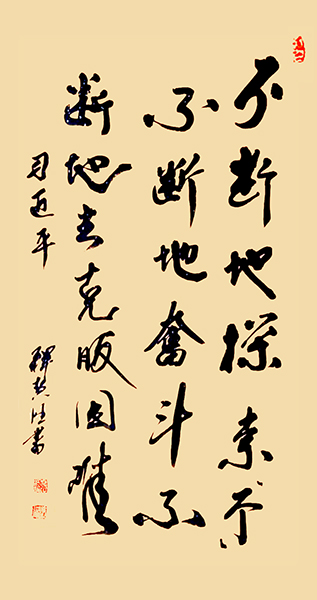 不断地探索
不断地奮斗不
断地去克服困难
习近平